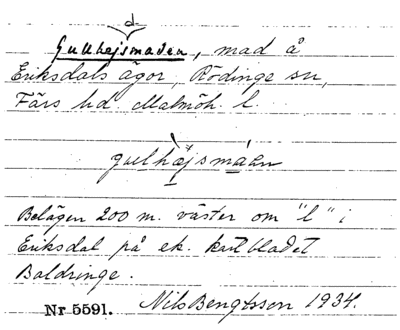 d
Gullhejsmaden, mad å
Eriksdals ägor, Rödinge sn,
Färs hd. Malmöh. l.
gulhäjsmáen
Belägen 200 m. väster om "l" i
Eriksdal på ek. kartbladet
Baldringe.
Nr 5591. Nils Bengtsson 1934.